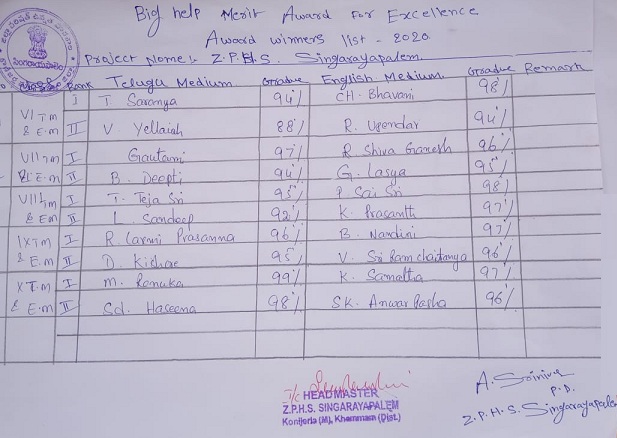 Big help Merit Award For Excellence
Award winners list - 2020
Project Name:- Z.P.H.S. Singarayapalem
Rank Telugu Medium Gradue English Medium Gradue Remark
VI T.m I T. Saranya 94% CH. Bhavani 98%
& E.m II V. Yellaiah 88% R. Upendar 94%
VII T.m I Goutami 97% R Shiva Ganesh 96%
E.m II B. Deepti 94% G. Lasya 95%
VIII T.m I T. Teja Sri 95% P. Sai Sri 98%
& E.m II L. Sandeep 92% K. Prasanth 97%
IX T.m I R. Laxmi Prasanna 96% B. Nandini 97%
& E.m II D. Kishor 95% V. Sri Ram chaitanya 96%
X T.m I M. Renuka 99% K. Samatha 97%
& E.m II Sd. Haseena 98% SK. Anwar Pasha 96%
I/c HEADMASTER
Z.P.H.S. SINGARAYAPALEM
Konijerla (M), Khammam (Dist.)
A. Sriniva
P.D.
Z.P.H.S. Singarayapalem